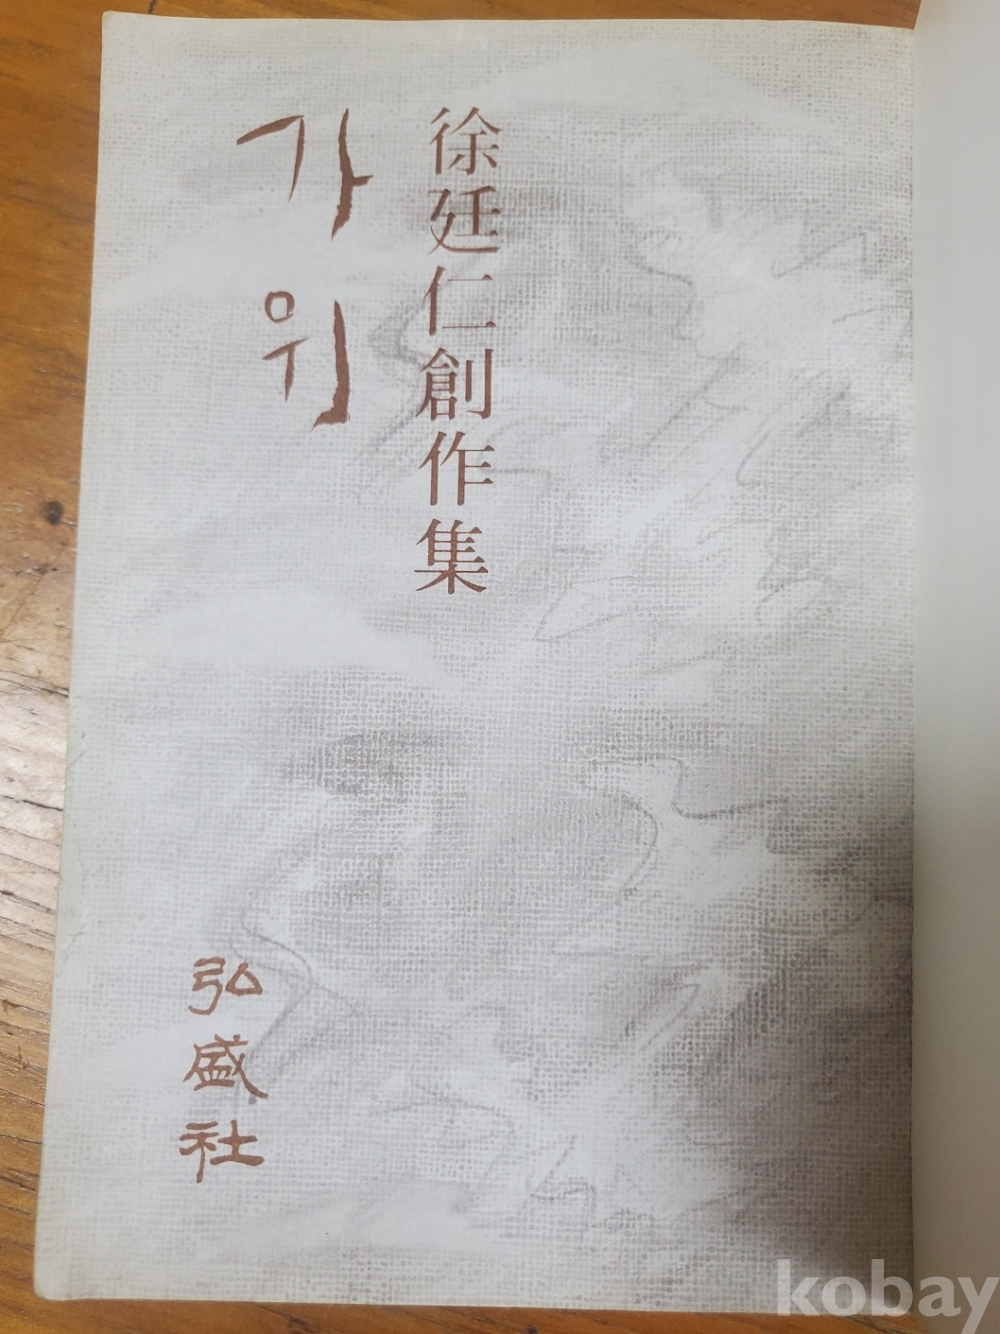 徐廷仁創作集
가위
弘盛社
kobay